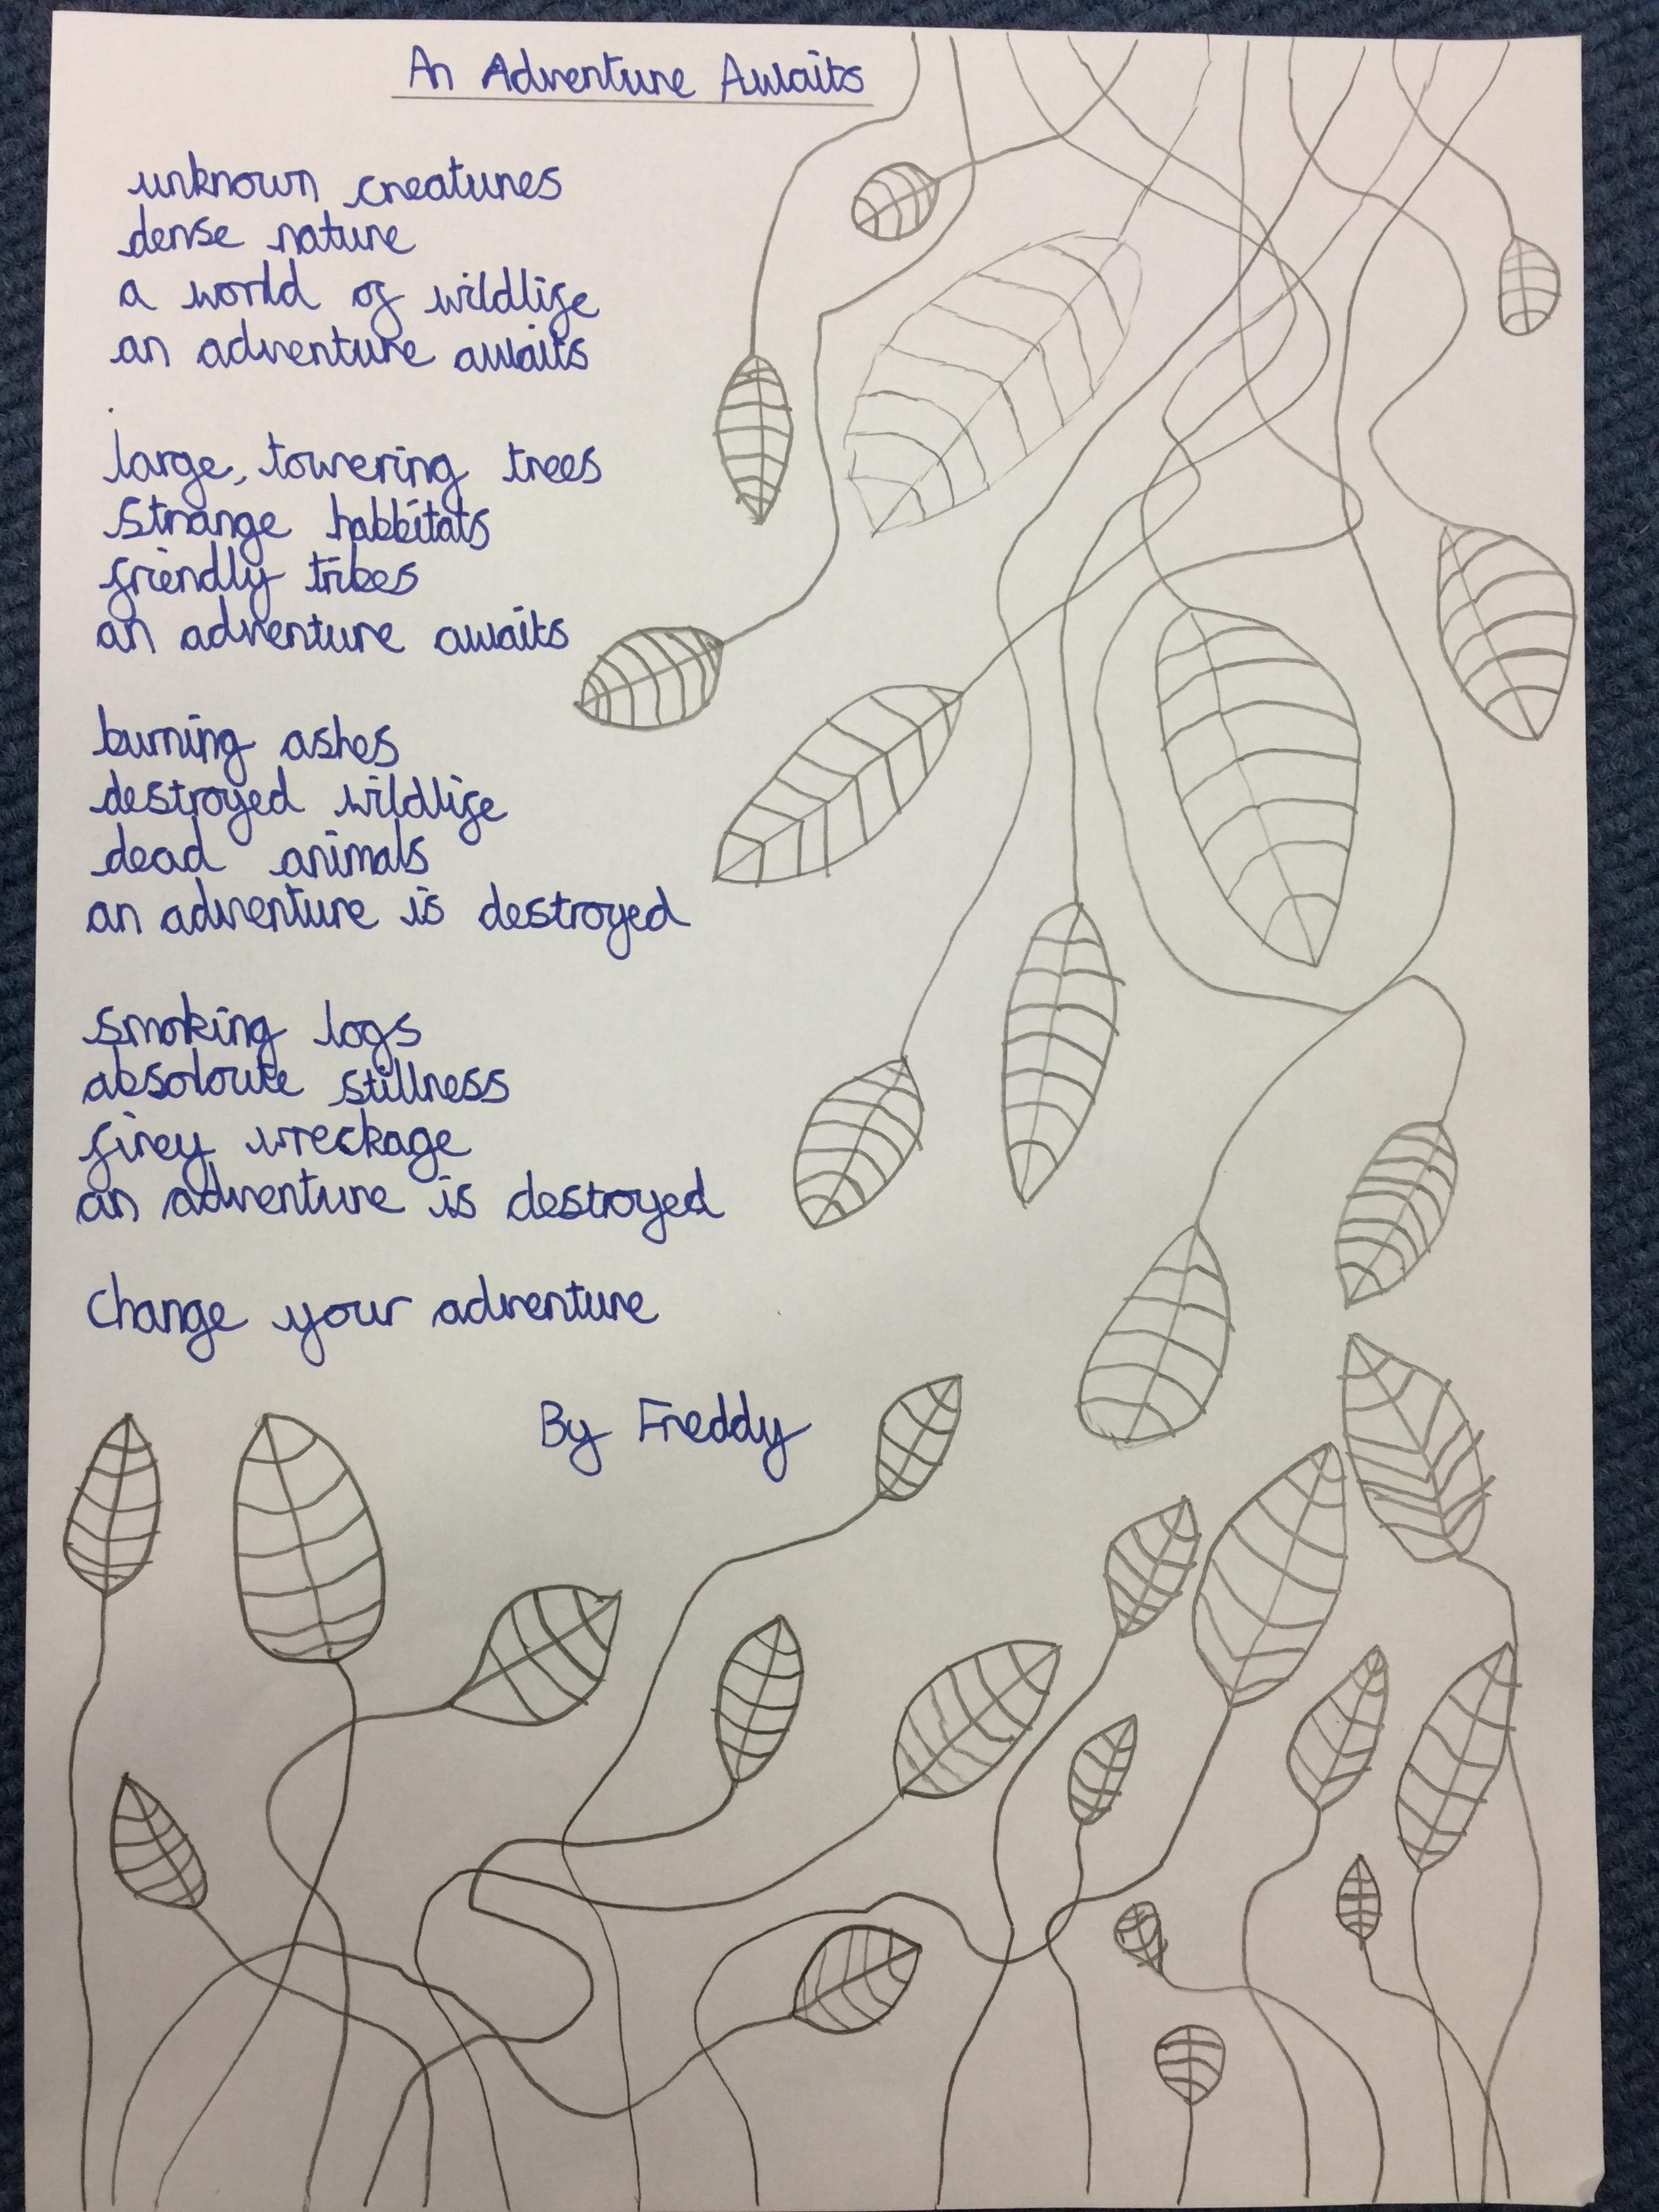 An Adventure Awaits
unknown creatures
dense nature
a world of wildlife
an adventure awaits
large, towering trees
strange habbitats
friendly tribes
an adventure awaits
burning ashes
destroyed wildlife
dead animals
an adventure is destroyed
smoking logs
absoloute stillness
firey wreckage
an adventure is destroyed
Change your adventure
By Freddy